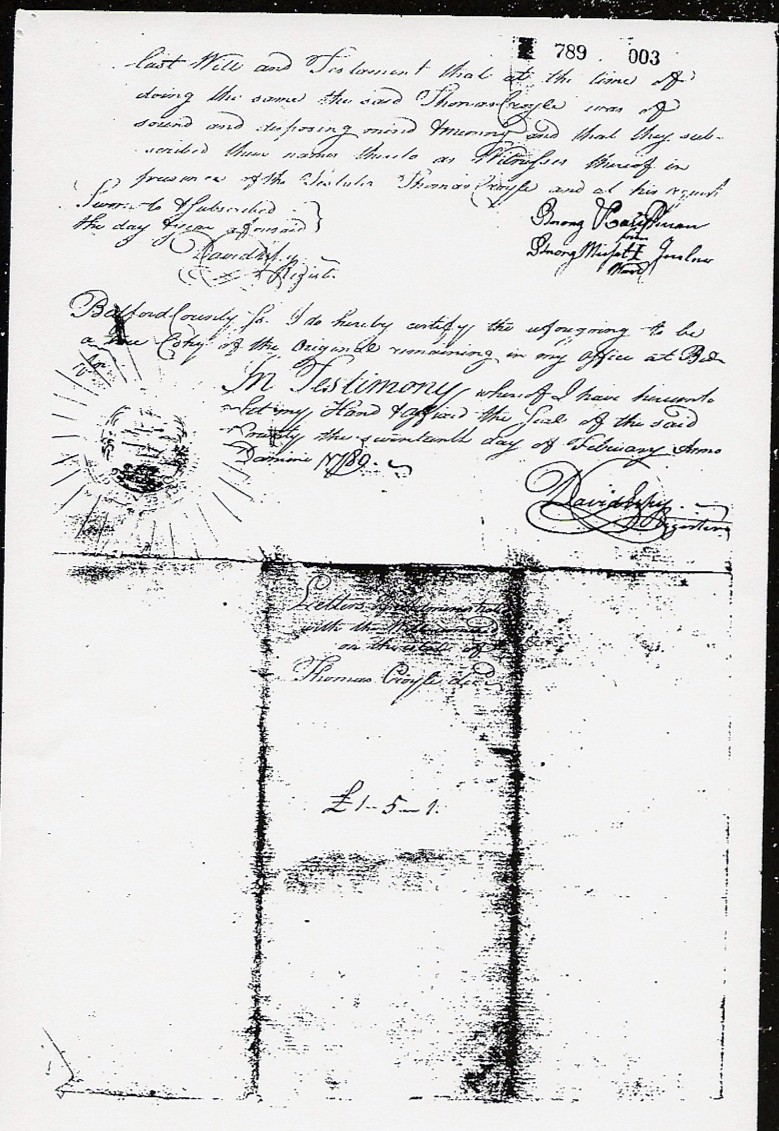 789 003
last Will and Testament that at the time of
doing the same the said Thomas Croyle was of
sound and disposing mind & memory and that they sub-
scribed their names thereto as Witnesses thereof in
presence of the Testator Thomas Croyle and at his request
Sworn to & Subscribed
the day & year aforesaid
David Espy
Regist.
Bedford County ss. I do hereby certify the aforegoing to be
a true Copy of the Original remaining in my office at Bed
In Testimony whereof I have hereunto
Set my Hand & affixed the Seal of the said
County the seventeenth day of February Anno
Domini 1789.
David Espy
Register
Letters of Administration
with the Will annexed
on the estate of
Thomas Croyle dec
£1-5-1.